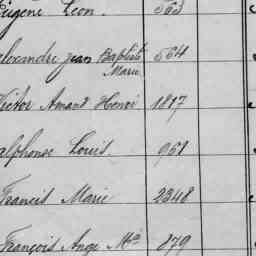 Eugène Léon 563
Alexandre Jean Baptiste 564
Marie
Victor Amand Henri 1817
Alphonse Louis 961
Francis Marie 2348
François Ange Mie 879